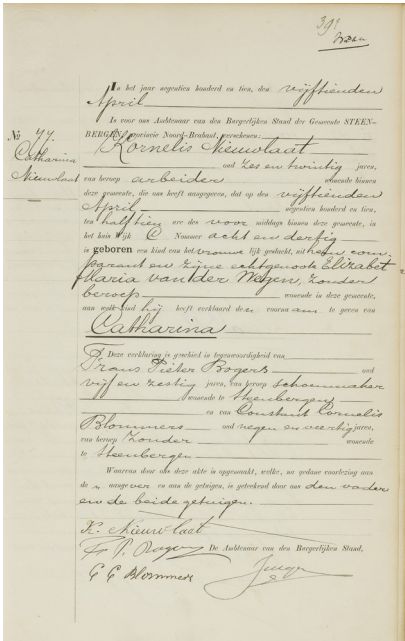 In het jaar negentien honderd en tien, den vijftienden
April
is voor ons Ambtenaar van den Burgerlijken Stand der Gemeente STEEN-
BERGEN, provincie Noord-Brabant, verschenen:
No 77.
Catharina
Nieuwlaat
Kornelis Nieuwlaat
oud zes en twintig jaren,
van beroep arbeider wonende binnen
deze gemeente, die ons heeft aangegeven, dat op den vijftienden
April negentien honderd en tien,
ten half tien ure des voor middags binnen deze gemeente, in
het huis wijk C Nommer acht en dertig
is geboren een kind van het vrouwelijk geslacht, uit hem com-
parant en zijne echtgenoote Elizabet
Maria van der Wegen, zonder
beroep wonende in deze gemeente,
aan welk kind hij heeft verklaard de voornaam te geven van
Catharina
Deze verklaring is geschied in tegenwoordigheid van
Frans Pieter Bogers oud
vijf en zestig jaren, van beroep schoenmaker
wonende te Steenbergen
en van Constant Cornelis
Blommers oud negen en veertig jaren,
van beroep zonder wonende
te Steenbergen
Waarvan door ons deze akte is opgemaakt, welke, na gedane voorlezing aan
den aangever en aan de getuigen, is geteekend door ons den vader
en de beide getuigen.
K. Nieuwlaat
F. P. Bogers De Ambtenaar van den Burgerlijken Stand,
C C Blommers